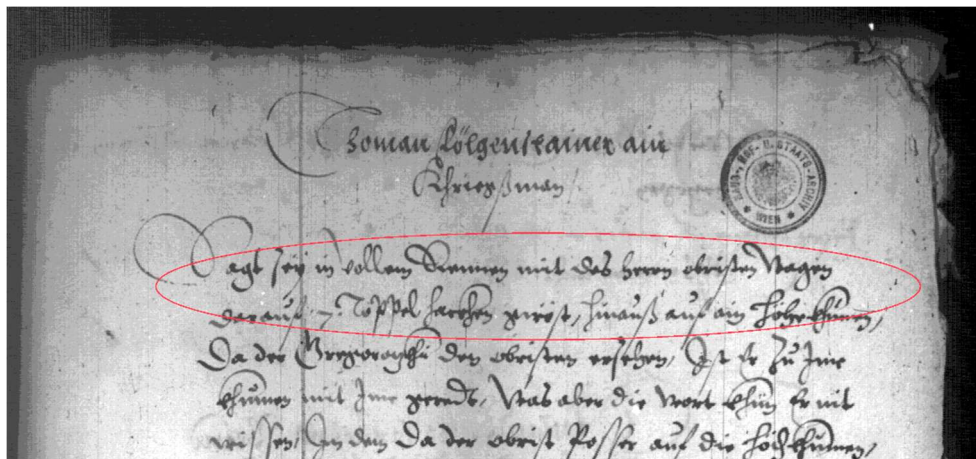 Thoman Kölgenstainer ain
Khriegßman
HAUS-, HOF- U. STAATS-ARCHIV WIEN
Sagt sey in vollem Rennen mit des herrn obristen Wagen
darauf 7 Toppel hackhen gerüst, hinauß auf ain Höhe khumen,
Da der Gregorotzkhi den obristen ersehen, Ist Er zu Ime
khumen mit Ime geredt, Was aber die Wort khün Er nit
wissen, In dem Da der obrist Posser auf die Höch khumen,